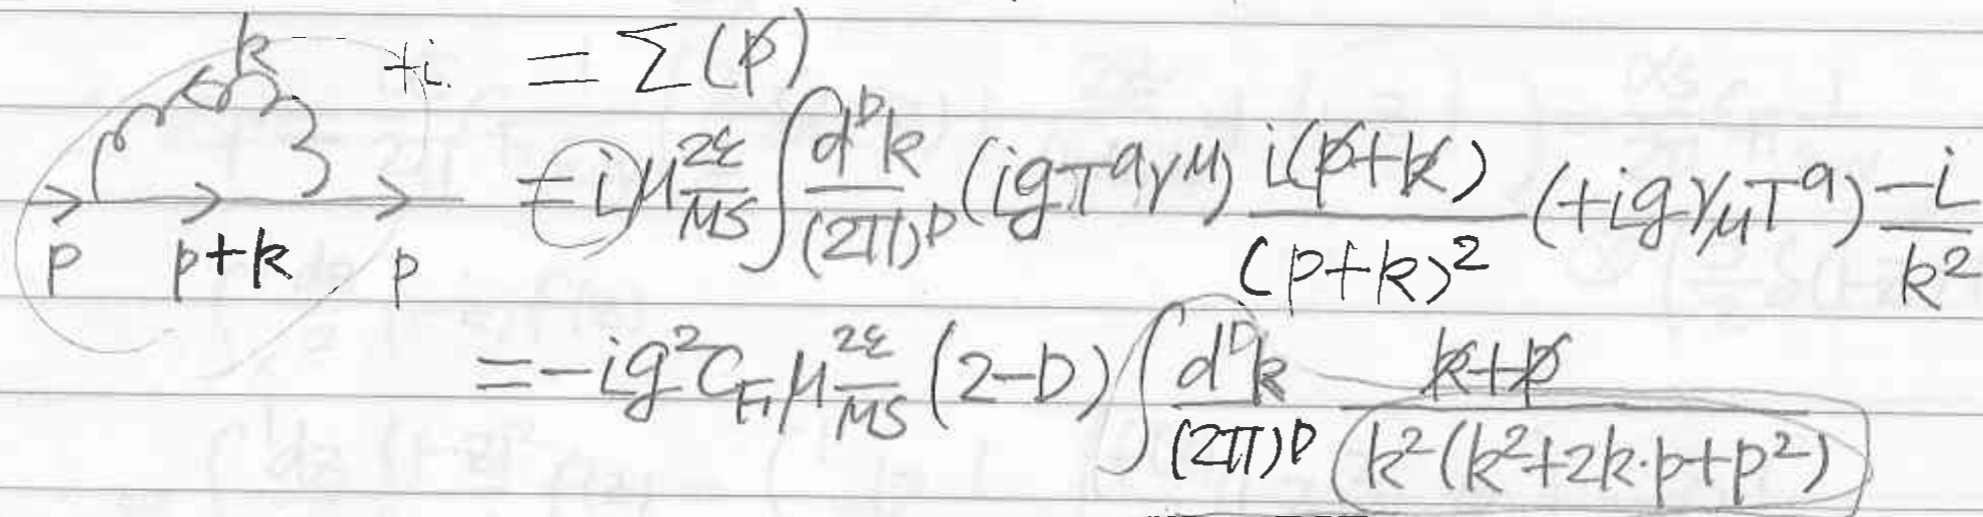 k +i = Σ(p̸)
= -i μ_{MS}^{2ε} ∫ d^D k/(2π)^D (igT^a γ^μ) i(p̸+k̸)/(p+k)^2 (+igγ_μ T^a) -i/k^2
p p+k p
= -ig^2 C_F μ_{MS}^{2ε} (2-D) ∫ d^D k/(2π)^D (k̸+p̸)/(k^2(k^2+2k·p+p^2))